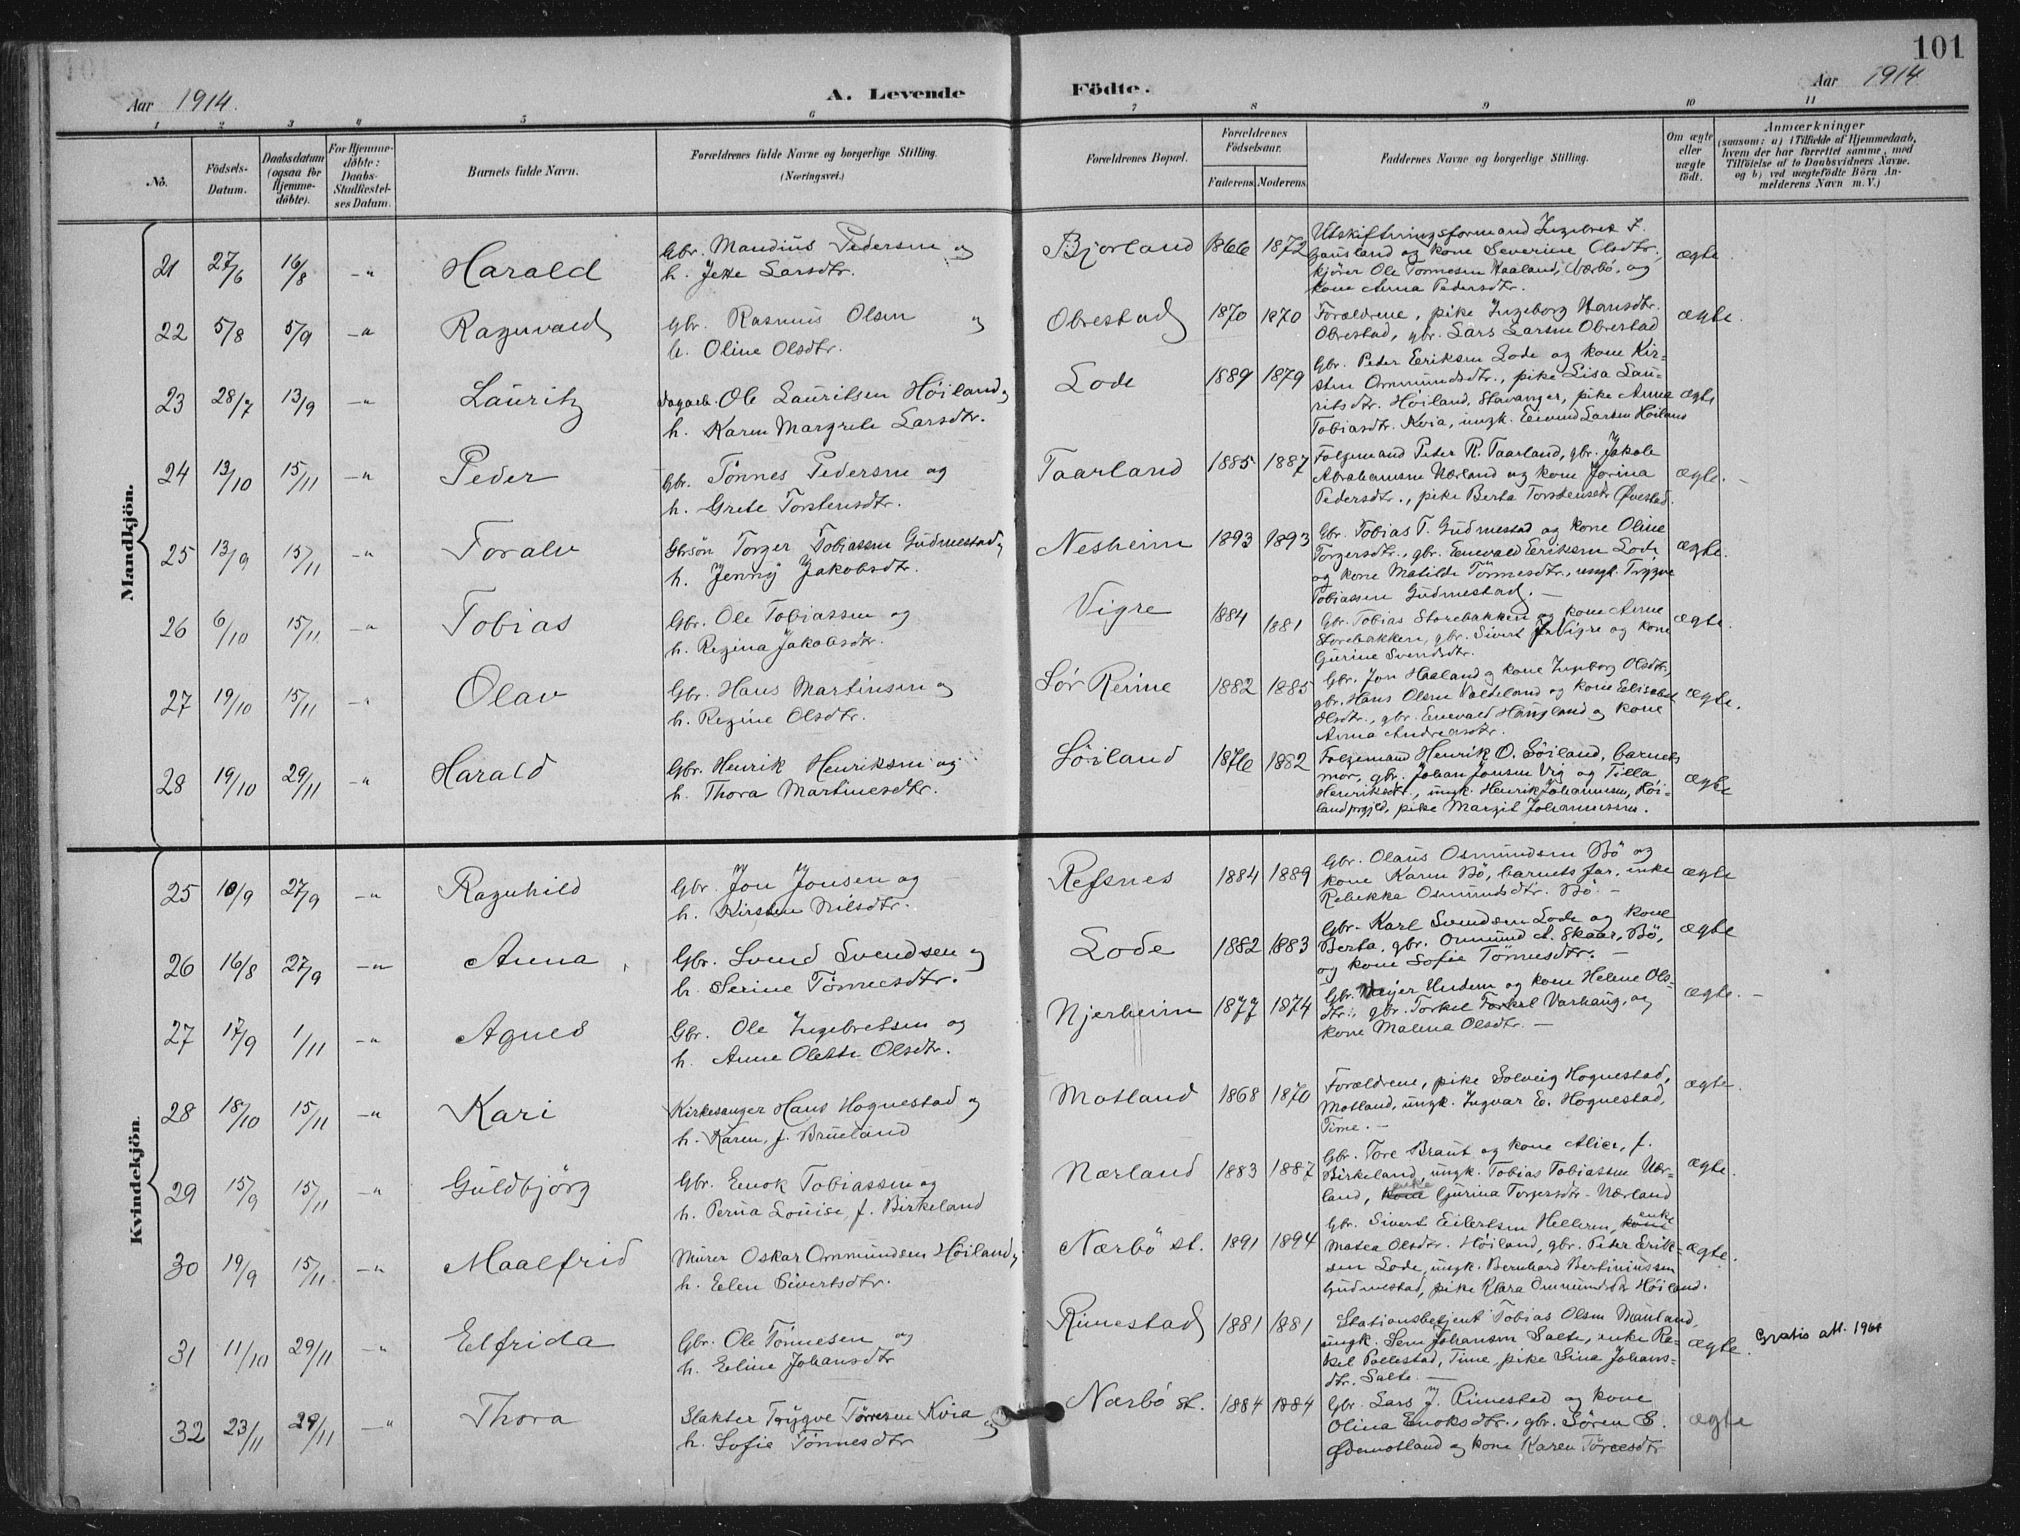 101
Aar 1914.
A. Levende
Födte.
Aar 1914
1 2 3 4 5 6 7 8 9 10 11
No.
Födsels-
Datum.
Daabsdatum
(ogsaa for
Hjemme-
döbte).
For Hjemme-
döbte:
Daabs-
Stadfæstel-
ses Datum.
Barnets fulde Navn.
Forældrenes fulde Navne og borgerlige Stilling.
(Næringsvei.)
Forældrenes Bopæl.
Forældrenes
Födselsaar.
Faderens. Moderens.
Faddernes Navne og borgerlige Stilling.
Om ægte
eller
uægte
födt.
Anmærkninger
(saasom: a) i Tilfælde af Hjemmedaab,
hvem der har forrettet samme, med
Tilföielse af to Daabsvidners Navne.
og b) ved uægtefödte Börn An-
melderens Navn m. V.)
Mandkjön.
21 27/6 16/8 -"- Harald
Gbr. Mandius Pedersen og
h. Jette Larsdtr.
Bjorland 1866 1872
Utskiftningsformand Ingebret
Gausland og kone Severine Olsdtr.,
kjører Ole Tønnesen Haaland, Nærbö, og
kone Anna Pedersdtr.
ægte.
22 5/8 5/9 -"- Ragnvald
Gbr. Rasmus Olsen og
h. Oline Olsdtr.
Obrestad 1870 1870
Forældrene, pike Ingeborg Hansdtr.
Obrestad, gbr. Lars Larsen Obrestad
ægte.
23 28/7 13/9 -"- Lauritz
Dagarb. Ole Lauritsen Höiland,
h. Karen Margrete Larsdtr.
Lode 1889 1879
Gbr. Peter Eeriksen Lode og kone Kir-
sten Ommundsdtr., pike Lisa Lau-
ritsdtr. Höiland, Stavanger, pike Anna
Tobiasdtr. Kvia, ungk. Eeivind Larsen Höiland
ægte
24 13/10 15/11 -"- Peder
Gbr. Tönnes Pedersen og
h. Grete Torstensdtr.
Taarland 1885 1887
Folgemand Peter R. Taarland, gbr. Jakob
Abrahamsen Nærland og kone Jorina
Pedersdtr., pike Berta Torstensdtr Øvestad.
ægte.
25 13/9 15/11 -"- Toralv
Gbrsön Torger Tobiassen Gudmestad,
h. Jenny Jakobsdtr.
Nesheim 1893 1893
Gbr. Tobias T. Gudmestad og kone Oline
Torgersdtr., gbr. Eenevald Eeriksen Lode
og kone Matilde Tönnesdtr., ungk. Trygve
Tobiassen Gudmestad.
ægte.
26 6/10 15/11 -"- Tobias
Gbr. Ole Tobiassen og
h. Regina Jakobsdtr.
Vigre 1884 1881
Gbr. Tobias Storebakken og kone Anne
Storebakken, gbr. Sivert Vigre og kone
Gurine Svendsdtr.
ægte.
27 19/10 15/11 -"- Olav
Gbr. Hans Martinsen og
h. Regine Olsdtr.
Sör Reime 1882 1885
Gbr. Jon Haaland og kone Ingeborg Olsdtr,
gbr. Hans Olsen Valheland og kone Eelisabet
Olsdtr., gbr. Eenevald Haugland og kone
Anna Andreasdtr.
ægte.
28 19/10 29/11 -"- Harald
Gbr. Henrik Henriksen og
h. Thora Martinesdtr.
Söiland 1876 1882
Folgemand Henrik O. Söiland, barnets
mor, gbr. Johan Jonsen Vig og Tilla
Henriksdtr., ungk. Henrik Johannesen, Höi-
landprgjld, pike Margit Johannessen.
ægte
Kvindekjön.
25 10/9 27/9 -"- Ragnhild
Gbr. Jon Jonsen og
h. Kirsten Nilsdtr.
Refsnes 1884 1889
Gbr. Olaus Osmundsen Bö og
kone Karen Bö, barnets far, enke
Rebekka Osmundsdtr. Bö.
ægte
26 16/8 27/9 -"- Anna
Gbr. Svend Svendsen og
h. Serine Tönnesdtr.
Lode 1882 1883
Gbr. Karl Svendsen Lode og kone
Berta, gbr. Ommund A. Skaar, Bö,
og kone Sofie Tönnesdtr.
ægte
27 17/9 1/11 -"- Agnes
Gbr. Ole Ingebretsen og
h. Anne Olette Olsdtr.
Njerheim 1877 1874
Gbr. Meijer Undem og kone Helene Ols-
dtr., gbr. Torkel Torkel Varhaug, og
kone Malena Olsdtr.
ægte.
28 18/10 15/11 -"- Kari
Kirkesanger Hans Hognestad og
h. Karen, f. Brueland
Motland 1868 1870
Forældrene, pike Solveig Hognestad,
Motland, ungk. Ingvar E. Hognestad,
Time.
ægte.
29 15/9 15/11 -"- Guldbjörg
Gbr. Eenok Tobiassen og
h. Perna Louise, f. Birkeland
Nærland 1883 1887
Gbr. Tore Braut og kone Alice, f.
Birkeland, ungk. Tobias Tobiassen Nær-
land, kone enke Gurina Torgersdtr. Nærland
ægte.
30 19/9 15/11 -"- Maalfrid
Murer Oskar Ommundsen Höiland,
h. Eelen Sivertsdtr.
Nærbö st. 1891 1894
Gbr. Sivert Eilertsen Helleren, kone enke
Matea Olsdtr. Höiland, gbr. Peter Erik-
sen Lode, ungk. Bernhard Bertiniussen
Gudmestad, pike Klara Ommundsdtr Höiland.
ægte.
31 11/10 29/11 -"- Elfrida
Gbr. Ole Tönnesen og
h. Eeline Johansdtr
Rimestad 1881 1881
Stationsbetjent Tobias Olsen Mauland,
ungk. Sem Johansen Salte, enke Ra-
kel Pollestad, Time, pike Sina Johans-
dtr. Salte.
ægte.
Gratis att. 1961
32 23/11 29/11 -"- Thora
Slakter Trygve Törresen Kvia og
h. Sofie Tönnesdtr
Nærbö st. 1884 1884
Gbr. Lars J. Rimestad og kone
Olina Enoksdtr., gbr. Sören S.
Ødemotland og kone Karen Törresdtr
ægte